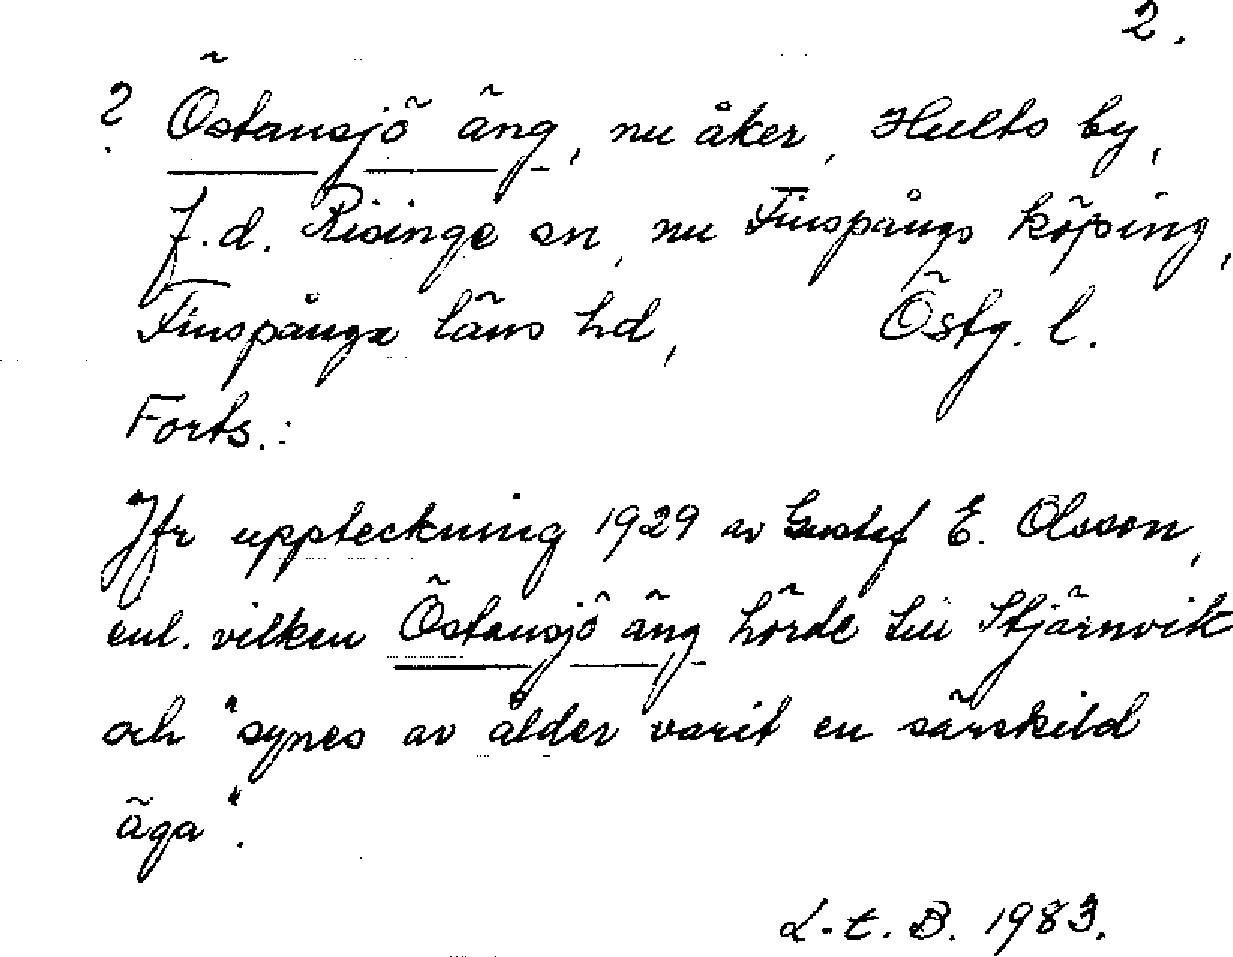 2.
? Östansjö äng, nu åker, Hults by,
f.d. Risinge sn, nu Finspångs köping,
Finspånga läns hd, Östg. l.
Forts.:
Jfr uppteckning 1929 av Gustef E. Olsson,
enl. vilken Östansjö äng hörde till Stjärnvik
och "synes av ålder varit en särskild
äga".
L.t.B. 1983.